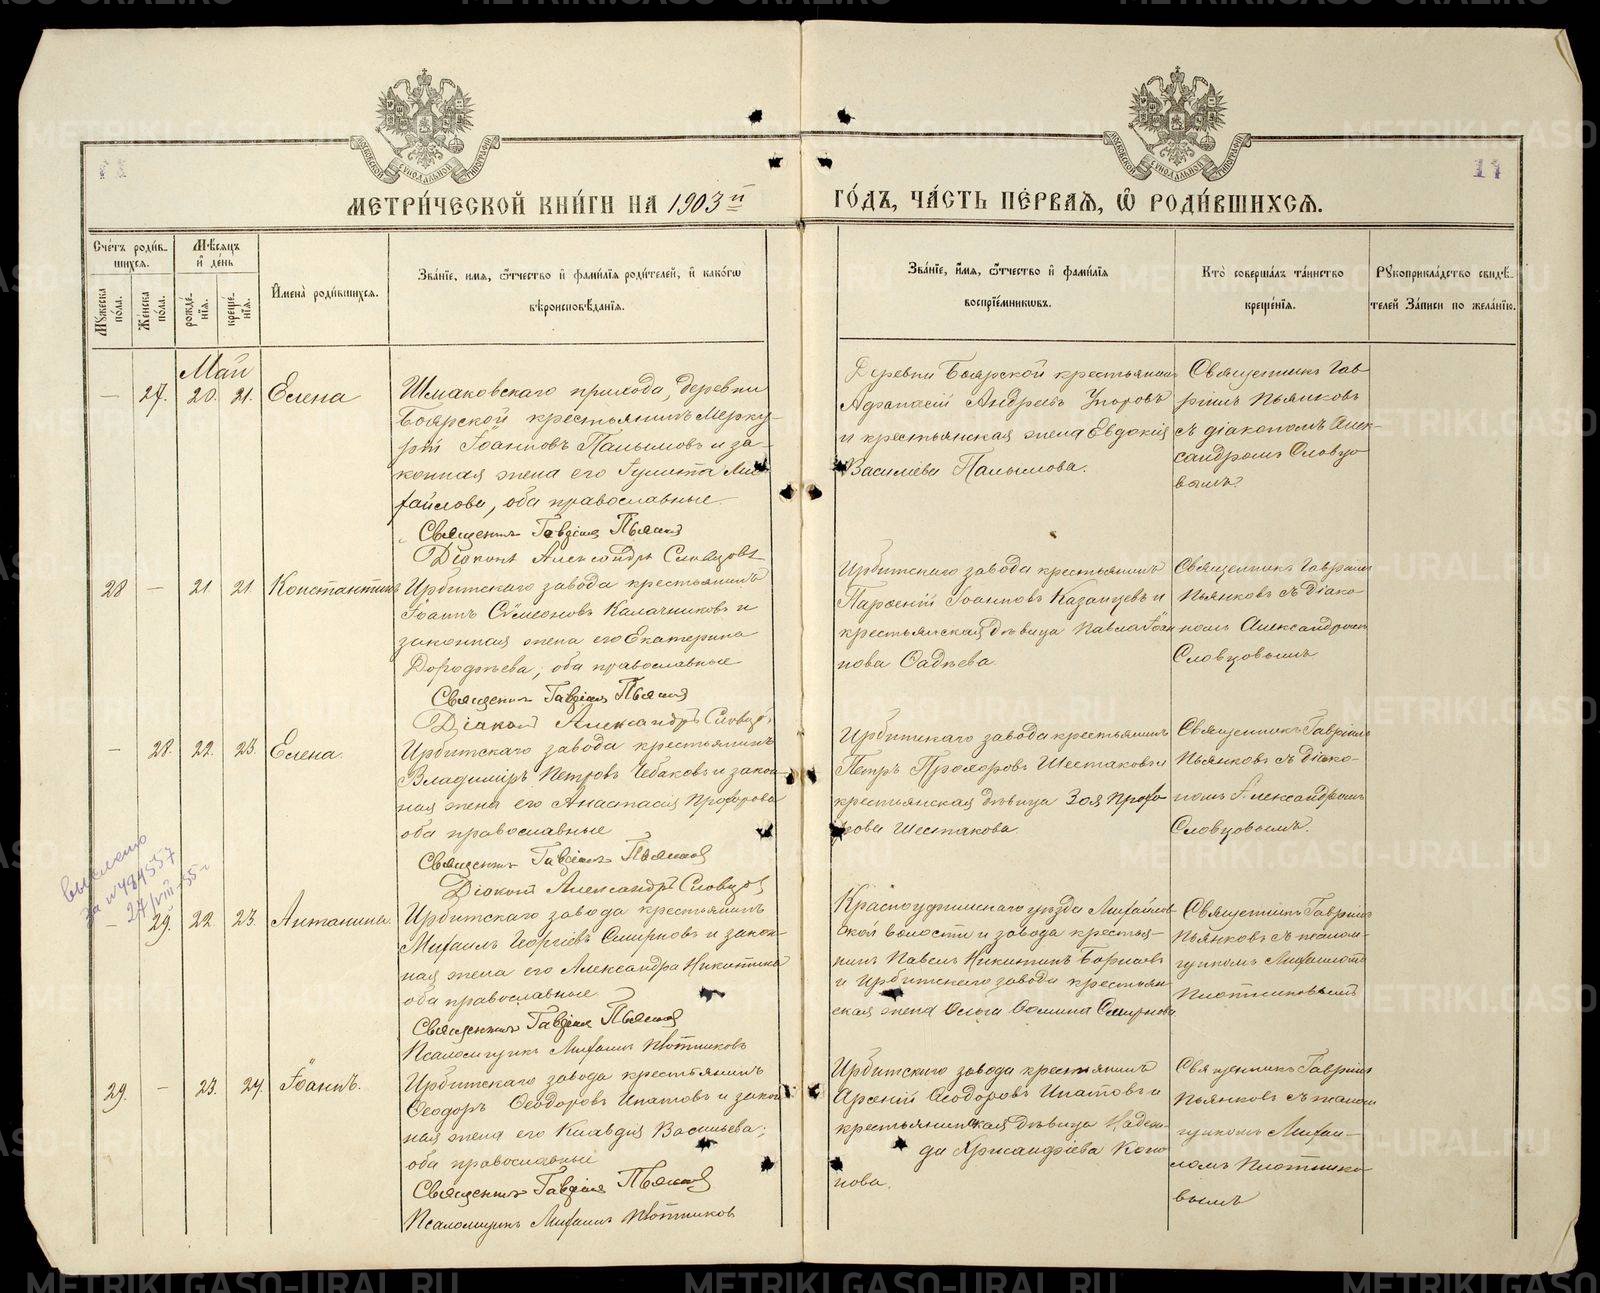 11
МЕТРИ́ЧЕСКОЙ КНИ́ГИ НА 1903 й ГО́ДЪ, ЧА́СТЬ ПЕ́РВАЯ, Ѡ РОДИ́ВШИХСЯ.
Сче́тъ роди́в-
шихся.
Мꙋжеска по́ла.
Же́нска по́ла.
Мѣ́сяцъ и де́нь
рожде́-
нїя.
креще́-
нїя.
И́мена роди́вшихся.
Зва́нїе, имя, ѻтчество и фами́лїя роди́телей, и како́гѡ
вѣроисповѣ́данїя.
Зва́нїе, и́мя, ѻтчество и фами́лїя
воспрїе́мникѡвъ.
Кто̀ соверша́лъ та́инство
креще́нїя.
Рꙋкоприкла́дство свидѣ́-
телей за́писи по жела́нїю.
Май
— 27. 20. 21. Елена
Шмаковскаго прихода, деревни
Боярской крестьянинъ Мерку-
рій Іоанновъ Палымовъ и за-
конная жена его Ми-
хайлова, оба православные
Священникъ Гавріилъ Пьянков
Діаконъ Александръ Словцовъ
Деревни Боярской крестьянинъ
Афанасій Андреевъ Упоровъ
и крестьянская жена Евдокія
Василіева Палымова.
Священникъ Гав-
ріилъ Пьянковъ
съ діакономъ Алек-
сандромъ Словцо-
вымъ.
28 — 21. 21. Константинъ
Ирбитскаго завода крестьянинъ
Іоаннъ Сѵмеоновъ Калачниковъ и
законная жена его Екатерина
Дорофѣева, оба православные
Священникъ Гавріилъ Пьянков
Діаконъ Александръ Словцовъ
Ирбитскаго завода крестьянинъ
Парѳеній Іоанновъ Казанцевъ и
крестьянская дѣвица Павла Іоан-
нова Ѳадѣева.
Священникъ Гавріилъ
Пьянковъ съ Діако-
номъ Александромъ
Словцовымъ
— 28. 22. 23. Елена.
Ирбитскаго завода крестьянинъ
Владиміръ Петровъ Чебаковъ и закон-
ная жена его Анастасія Прохорова
оба православные
Священникъ Гавріилъ Пьянков
Діаконъ Александръ Словцов
Ирбитскаго завода крестьянинъ
Петръ Прохоровъ Шестаковъ и
крестьянская дѣвица Зоя Прохо-
рова Шестакова.
Священникъ Гавріилъ
Пьянковъ съ Діако-
номъ Александромъ
Словцовымъ.
выслано
за № 484557
24/VIII-55 г
— 29. 22. 23. Антанина.
Ирбитскаго завода крестьянинъ
Михаилъ Георгіевъ Смирновъ и закон-
ная жена его Александра Никитина
оба православные
Священникъ Гавріилъ Пьянков
Псаломщикъ Михаилъ Плотниковъ
Красноуфимскаго уѣзда Михайлов-
ской волости и завода крестья-
нинъ Павелъ Никитинъ
и Ирбитскаго завода крестьян-
ская жена Ольга Ѳомина Смирнова
Священникъ Гавріилъ
Пьянковъ съ псалом-
щикомъ Михаиломъ
Плотниковымъ
29. — 23. 24. Іоаннъ.
Ирбитскаго завода крестьянинъ
Ѳеодоръ Ѳеодоровъ Ипатовъ и закон-
ная жена его Клавдія Васильева;
оба православные
Священникъ Гавріилъ Пьянков
Псаломщикъ Михаилъ Плотников
Ирбитскаго завода крестьянинъ
Арсеній Ѳеодоровъ Ипатовъ и
крестьянская дѣвица Надеж-
да Хрисанфіева Коно-
нова.
Священникъ Гавріилъ
Пьянковъ съ псалом
щикомъ Михаи-
ломъ Плотнико-
вымъ
METRIKI.GASO-URAL.RU